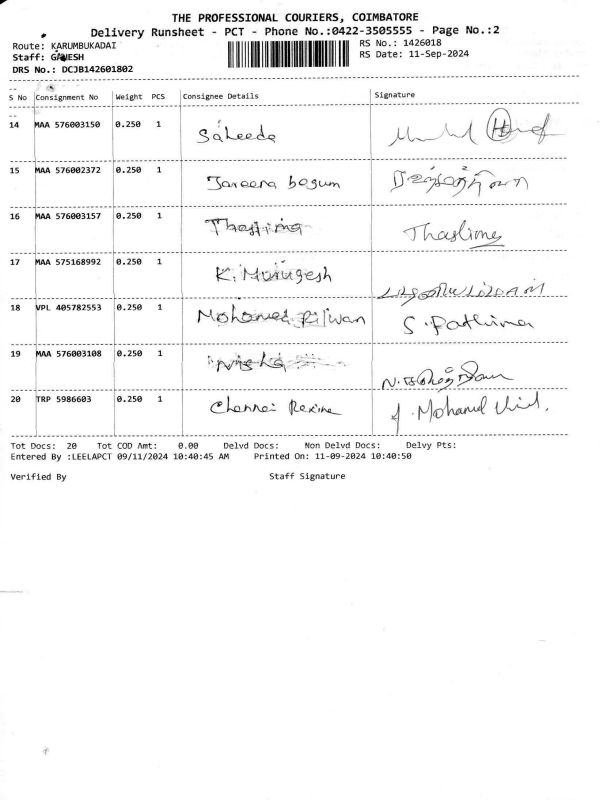 THE PROFESSIONAL COURIERS, COIMBATORE
Delivery Runsheet - PCT - Phone No.:0422-3505555 - Page No.:2
Route: KARUMBUKADAI RS No.: 1426018
Staff: GANESH RS Date: 11-Sep-2024
DRS No.: DCJB142601802
S No Consignment No Weight PCS Consignee Details Signature
14 MAA 576003150 0.250 1 Saheeda
15 MAA 576002372 0.250 1 Jareena begum
16 MAA 576003157 0.250 1 Thaslima Thaslima
17 MAA 575168992 0.250 1 K. Murugesh
18 VPL 405782553 0.250 1 Mohamed Rilwan S. Pathima
19 MAA 576003108 0.250 1 Nisha
20 TRP 5986603 0.250 1 Chennai Rexine Mohamed
Tot Docs: 20 Tot COD Amt: 0.00 Delvd Docs: Non Delvd Docs: Delvy Pts:
Entered By :LEELAPCT 09/11/2024 10:40:45 AM Printed On: 11-09-2024 10:40:50
Verified By Staff Signature